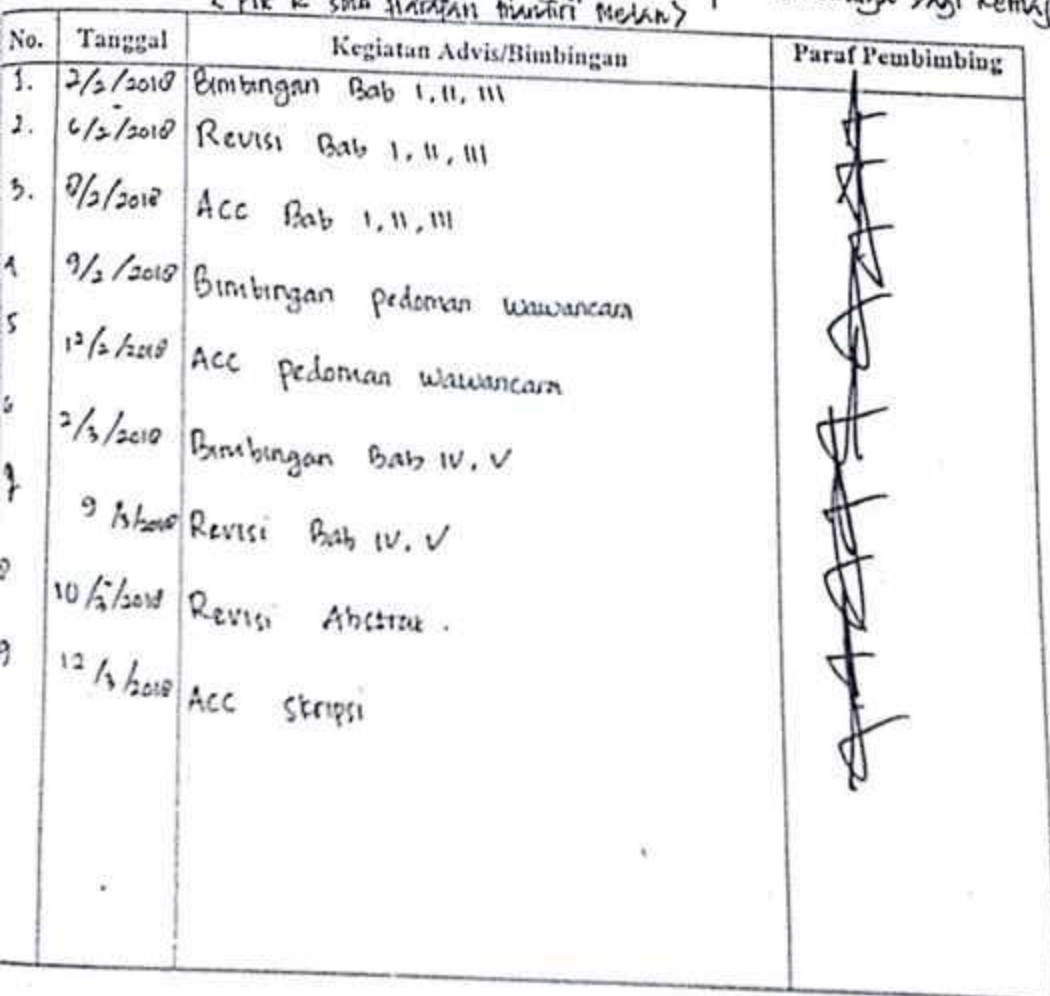 SMA Harapan Mandiri Medan>
No. Tanggal Kegiatan Advis/Bimbingan Paraf Pembimbing
1. 2/2/2018 Bimbingan Bab I, II, III
2. 6/2/2018 Revisi Bab I, II, III
3. 8/2/2018 Acc Bab I, II, III
4 9/2/2018 Bimbingan pedoman wawancara
5 12/2/2018 Acc pedoman wawancara
6 2/3/2018 Bimbingan Bab IV, V
7 9/3/2018 Revisi Bab IV, V
8 10/3/2018 Revisi Abstrak.
9 12/3/2018 Acc Skripsi